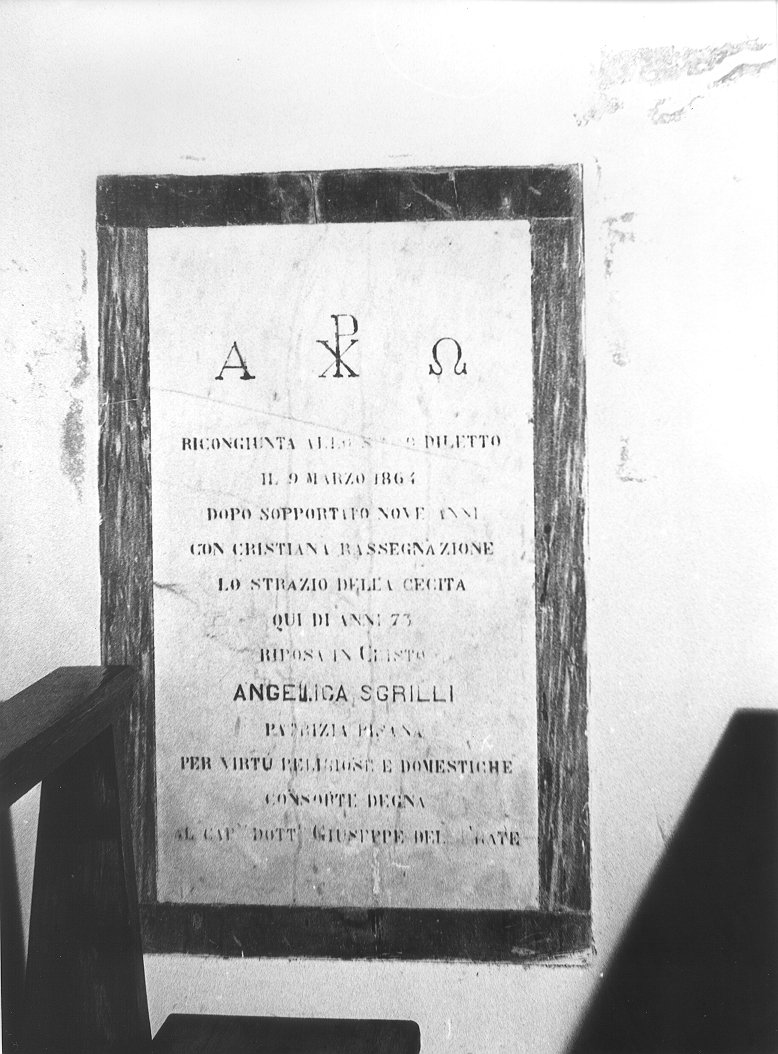 Α ☧ Ω
RICONGIUNTA ALLO DILETTO
IL 9 MARZO 1864
DOPO SOPPORTATO NOVE ANNI
CON CRISTIANA RASSEGNAZIONE
LO STRAZIO DELLA CECITA
QUI DI ANNI 73
RIPOSA IN CRISTO
ANGELICA SGRILLI
PATRIZIA PISANA
PER VIRTÙ RELIGIOSE E DOMESTICHE
CONSORTE DEGNA
AL CAP. DOTT. GIUSEPPE DEL FRATE